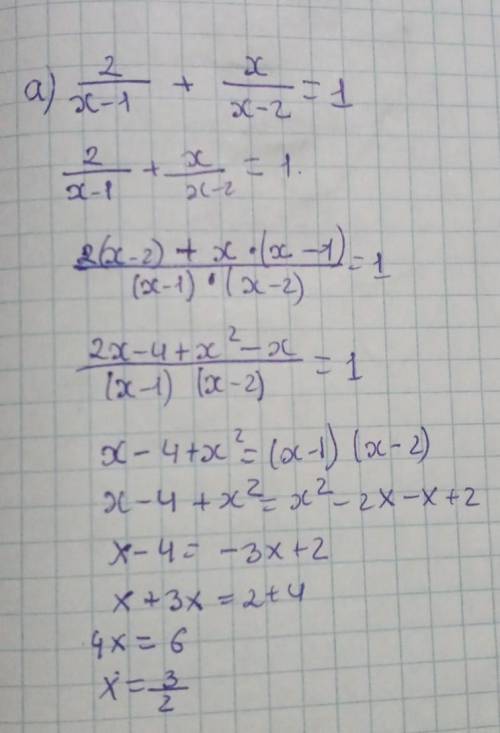 a) 2/(x-1) + x/(x-2) = 1
2/(x-1) + x/(x-2) = 1.
(2(x-2) + x·(x-1))/((x-1)·(x-2)) = 1
(2x-4+x²-x)/((x-1) (x-2)) = 1
x-4+x²=(x-1) (x-2)
x-4+x²=x²-2x-x+2
x-4= -3x+2
x+3x=2+4
4x=6
x=3/2